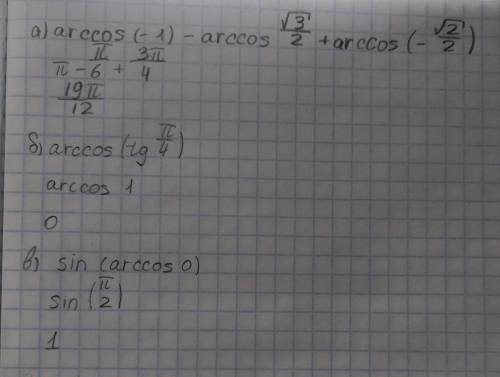 а) arccos (-1) - arccos √3/2 + arccos (-√2/2)
π - π/6 + 3π/4
19π/12
б) arccos (tg π/4)
arccos 1
0
в) sin (arccos 0)
sin (π/2)
1